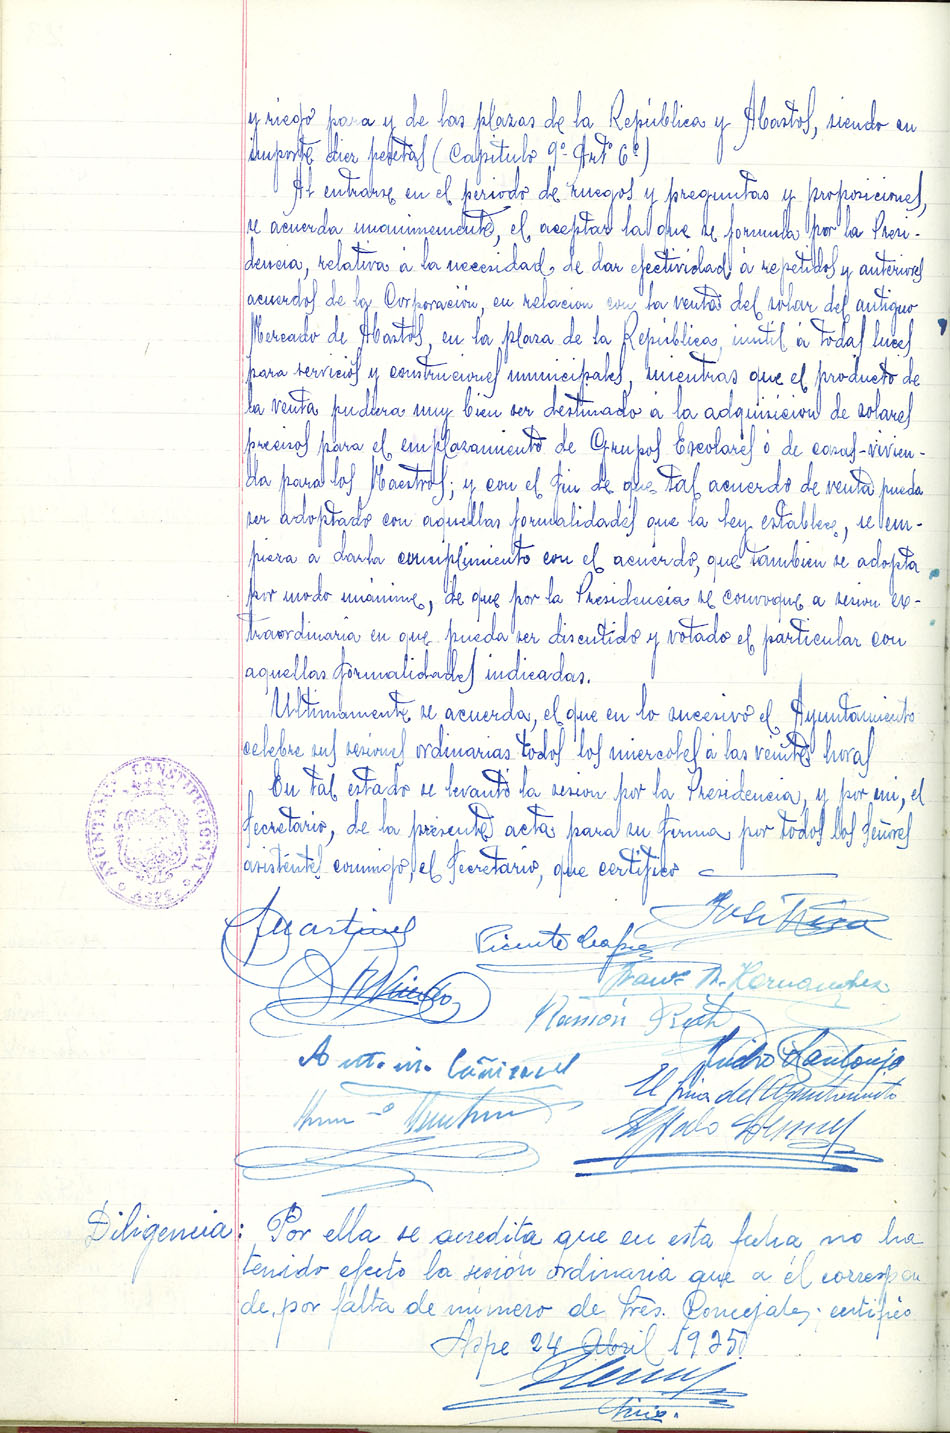 y riego para y de las plazas de la República y Abastos, siendo su
importe diez pesetas (Capitulo 9º Artº 6º)
Al entrarse en el periodo de ruegos y preguntas y proposiciones,
se acuerda unanimemente, el aceptar la que se formula por la Presi-
dencia, relativa á la necesidad de dar efectividad á repetidos y anteriores
acuerdos de la Corporación, en relacion con la venta del solar del antiguo
Mercado de Abastos, en la plaza de la República, inutil á todas luces
para servicios y construciones municipales, mientras que el producto de
la venta pudiera muy bien ser destinado á la adquisicion de solares
precisos para el emplazamiento de Grupos Escolares ó de casas-vivien-
da para los Maestros; y con el fin de que tal acuerdo de venta pueda
ser adoptado con aquellas formalidades que la ley establece, se em-
pieza a darla cumplimiento con el acuerdo, que tambien se adopta
por modo unánime, de que por la Presidencia se convoque a sesion ex-
traordinaria en que pueda ser discutido y votado el particular con
aquellas formalidades indicadas.
Ultimamente se acuerda, el que en lo sucesivo el Ayuntamiento
celebre sus sesiones ordinarias todos los miercoles á las veinte horas
En tal estado se levantó la sesion por la Presidencia, y por mi, el
Secretario, de la presente acta para su firma por todos los Señores
asistentes conmigo, el Secretario, que certifico
AYUNTAMIENTO CONSTITUCIONAL
ASPE
Martinez
Vicente
José
Franco A. Hernandez
Ramón
Antonio Cañizares
Isidro Santonja
El Srio del Ayuntamiento
Diligencia: Por ella se acredita que en esta fecha no ha
tenido efecto la sesión ordinaria que a él correspon
de, por falta de número de Sres. Concejales; certifico
Aspe 24 Abril 1935
Srio.